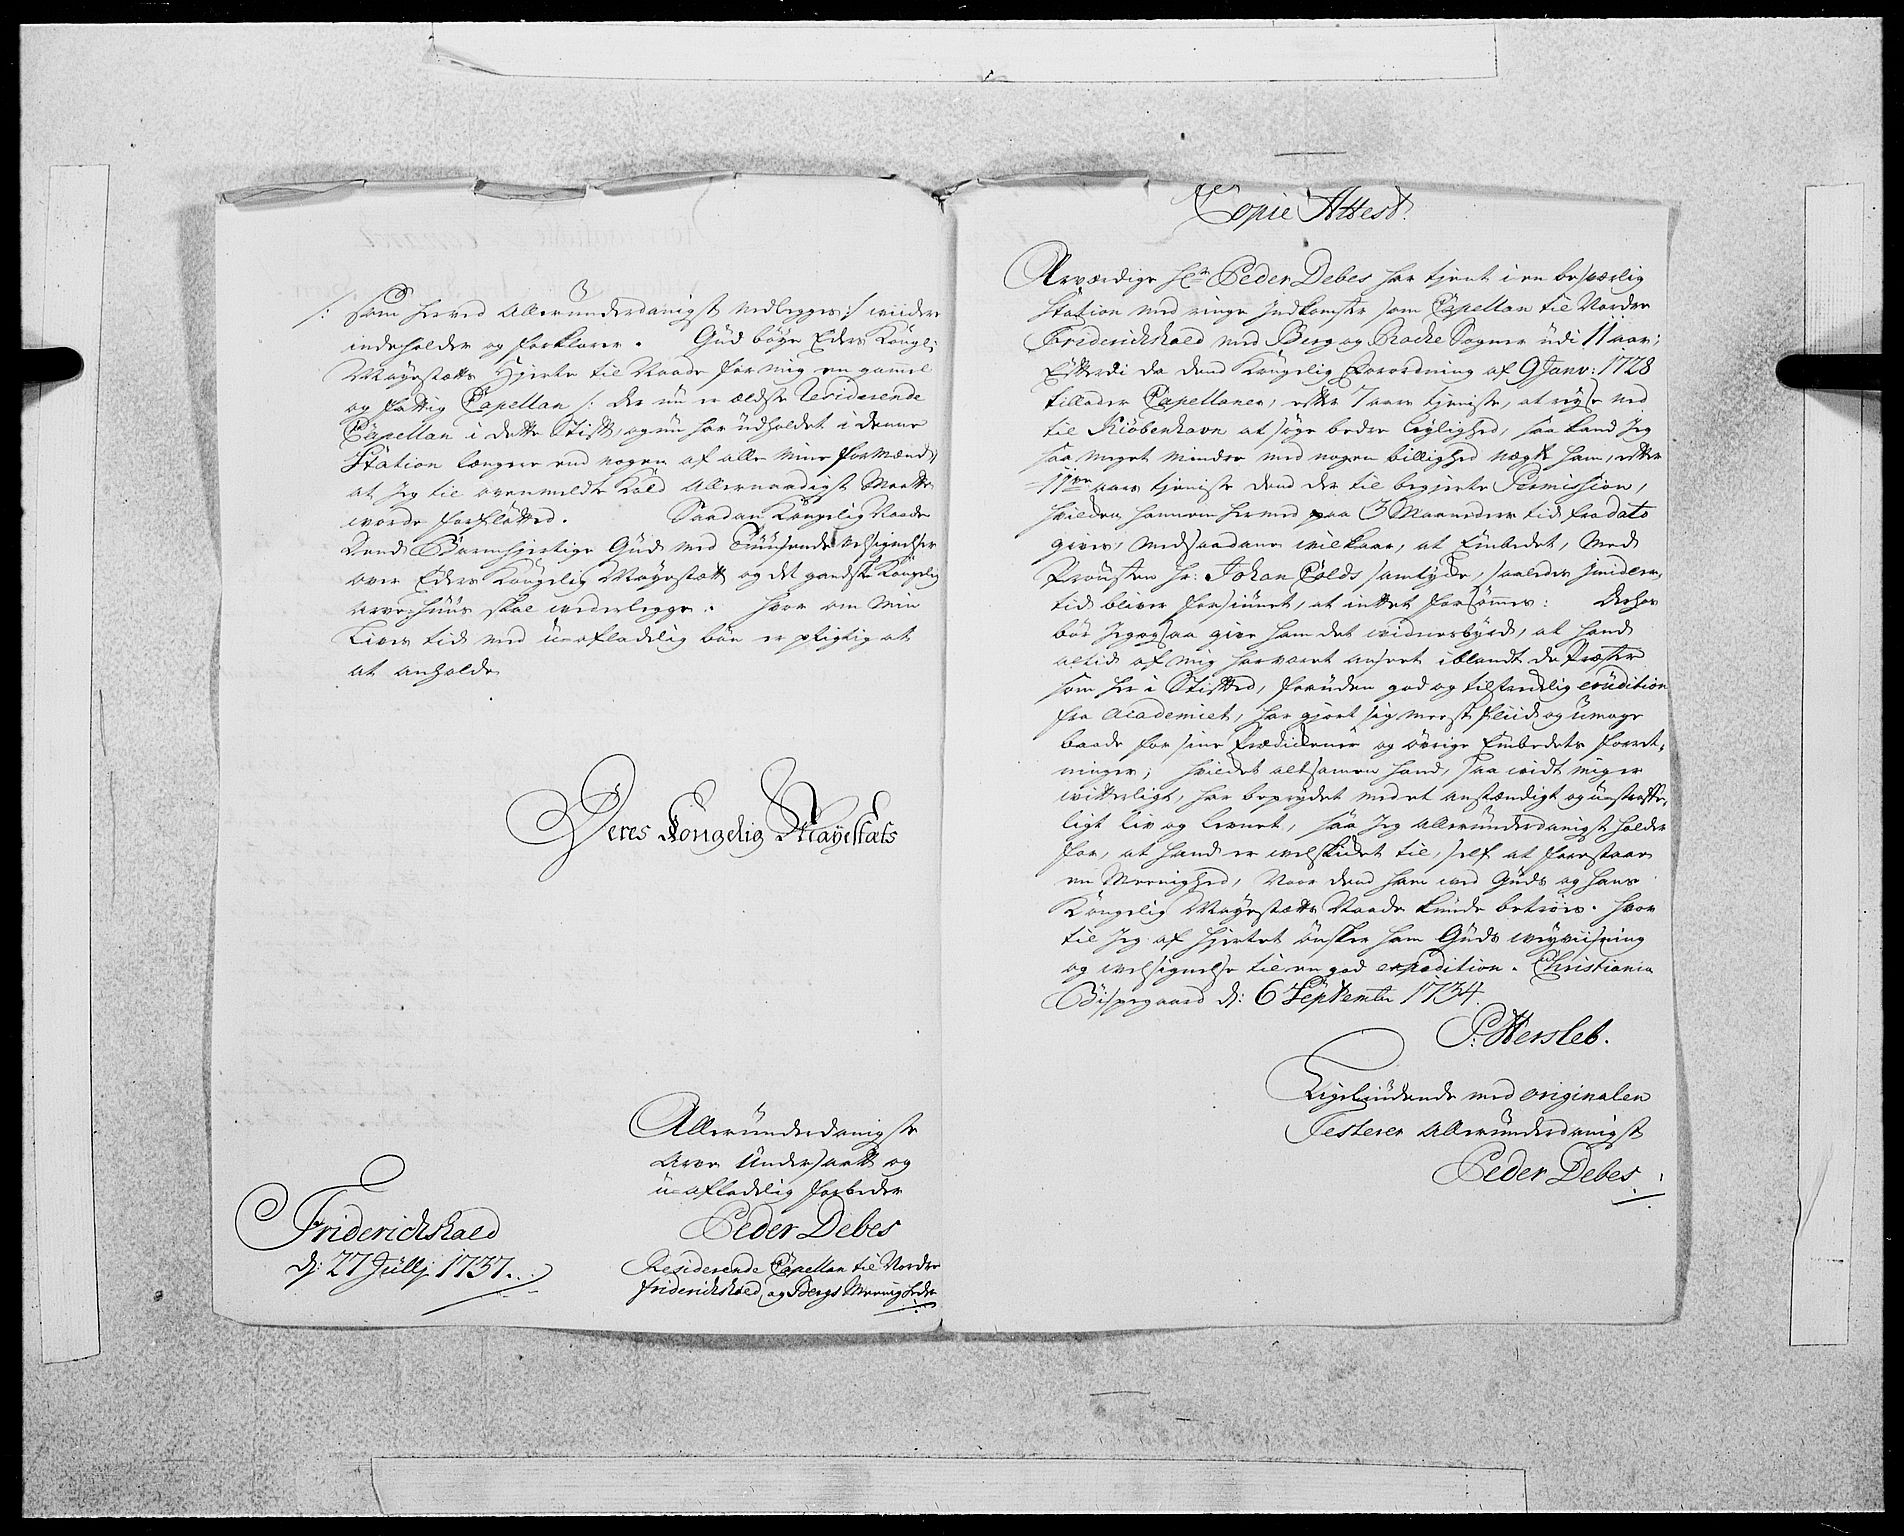 /: som herved allerunderdanigst vedlegges :/ viidere
indeholder og forklarer. Gud bøye Eders Kongl:
Mayestætts Hjerte til Naade for mig en gamel
og fattig Capellan /: der nu er ældste Residerende
Capellan i dette Stift, og nu har udholdet i denne
Station længere end nogen af alle mine Formænd :/
at jeg til ovenmeldte Kald allernaadigst maatte
worde forfløtted. Saadan Kongelig Naade
Dend Barmhjertige Gud med Tuusende Velsignelser
over Eders Kongelig Mayestætt og det gandske Kongelig
Arve-Huus skal vederlegge. Hvor om min
Lives tid med u-afladelig bøn er pligtig at
at anholde
Deres Kongelig Mayestæts
Allerunderdanigste
Arve Undersaatt og
u-afladelig forbeder
Peder Debes
Residerende Capellan til Nordre
Friderichshald og Bergs Meenigheder
Friderichshald
d: 27 Jullj 1737.
Copie Attest.
Ærværdige Hr Peder Debes har tjent i en besværlig
Station med ringe Indkomster som Capellan til Nordre
Friderichshald med Berg og Rocke Sogner udi 11 aar;
Efterdi da dend Kongelig Forordning af 9 Janv: 1728
tillader Capellaner, efter 7 aars tjeniste, at reyse ned
til Kiøbenhavn at søge bedre leylighed, saa kand jeg
saa meget mindre med nogen billighed nægte ham, efter
11 aars tjeniste dend der til begjerte Permission,
hvilken hannem hermed paa 3 Maaneders tid fra dato
gives, med saadane vilkaar, at Embedet, med
Provsten Hr: Johan Colds samtyche, saaledes imidler-
tid bliver forsiunet, at intet forsømmes: Derhos
bør jeg ogsaa give ham det vidnesbyrd, at hand
altid af mig har været anseet iblandt de Præster
som her i Stifted, foruden god og tilstrecklig erudition
fra Academiet, har gjort sig meest fliid og umage
baade for sine Prædickener og øvrige Embedets forret-
ninger; hvilcket altsamen hand, saa vidt mig er
vitterligt, har beprydet med et anstændigt og ustraffe-
ligt liv og levnet, saa jeg allerunderdanigst holder
for, at hand er velskicket til, self at forestaae
en Meenighed, naar dend ham ved Guds og Hans
Kongelig Mayestætts Naade kunde betroes. Hvor
til jeg af Hjertet ønsker ham Guds veyviisning
og velsignelse til en god expedition. Christiania
Bispegaard d: 6 September 1734.
P: Hersleb.
Ligelydende med originalen
Testerer allerunderdanigst
Peder Debes